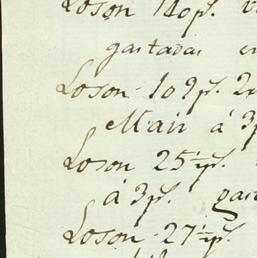 Loson 140 ps.
gastadas
Loson 109 ps.
Mair á 3 ps.
Loson 25½ ps.
á 3 ps.
Loson 27½ ps.